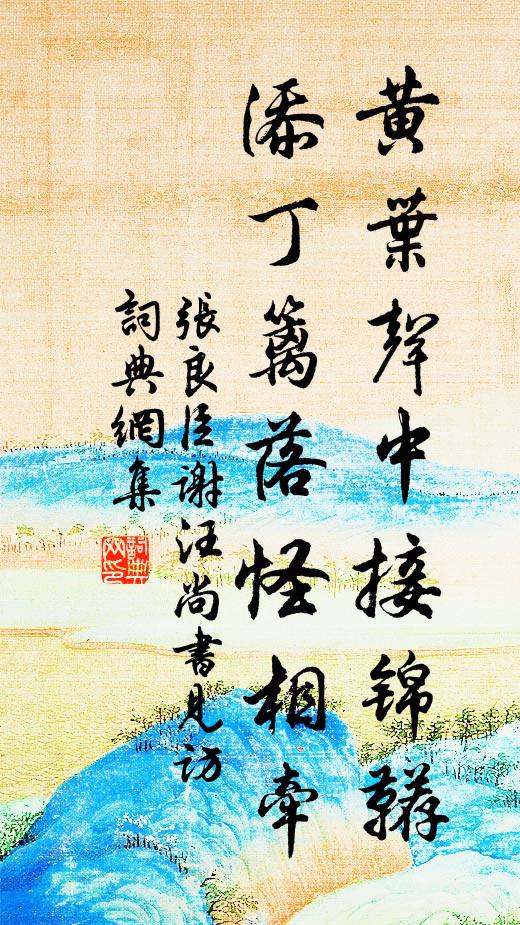 黄葉聲中接錦韉
添丁籬落怪相牽
張良臣謝汪尚書見訪
詞典網集